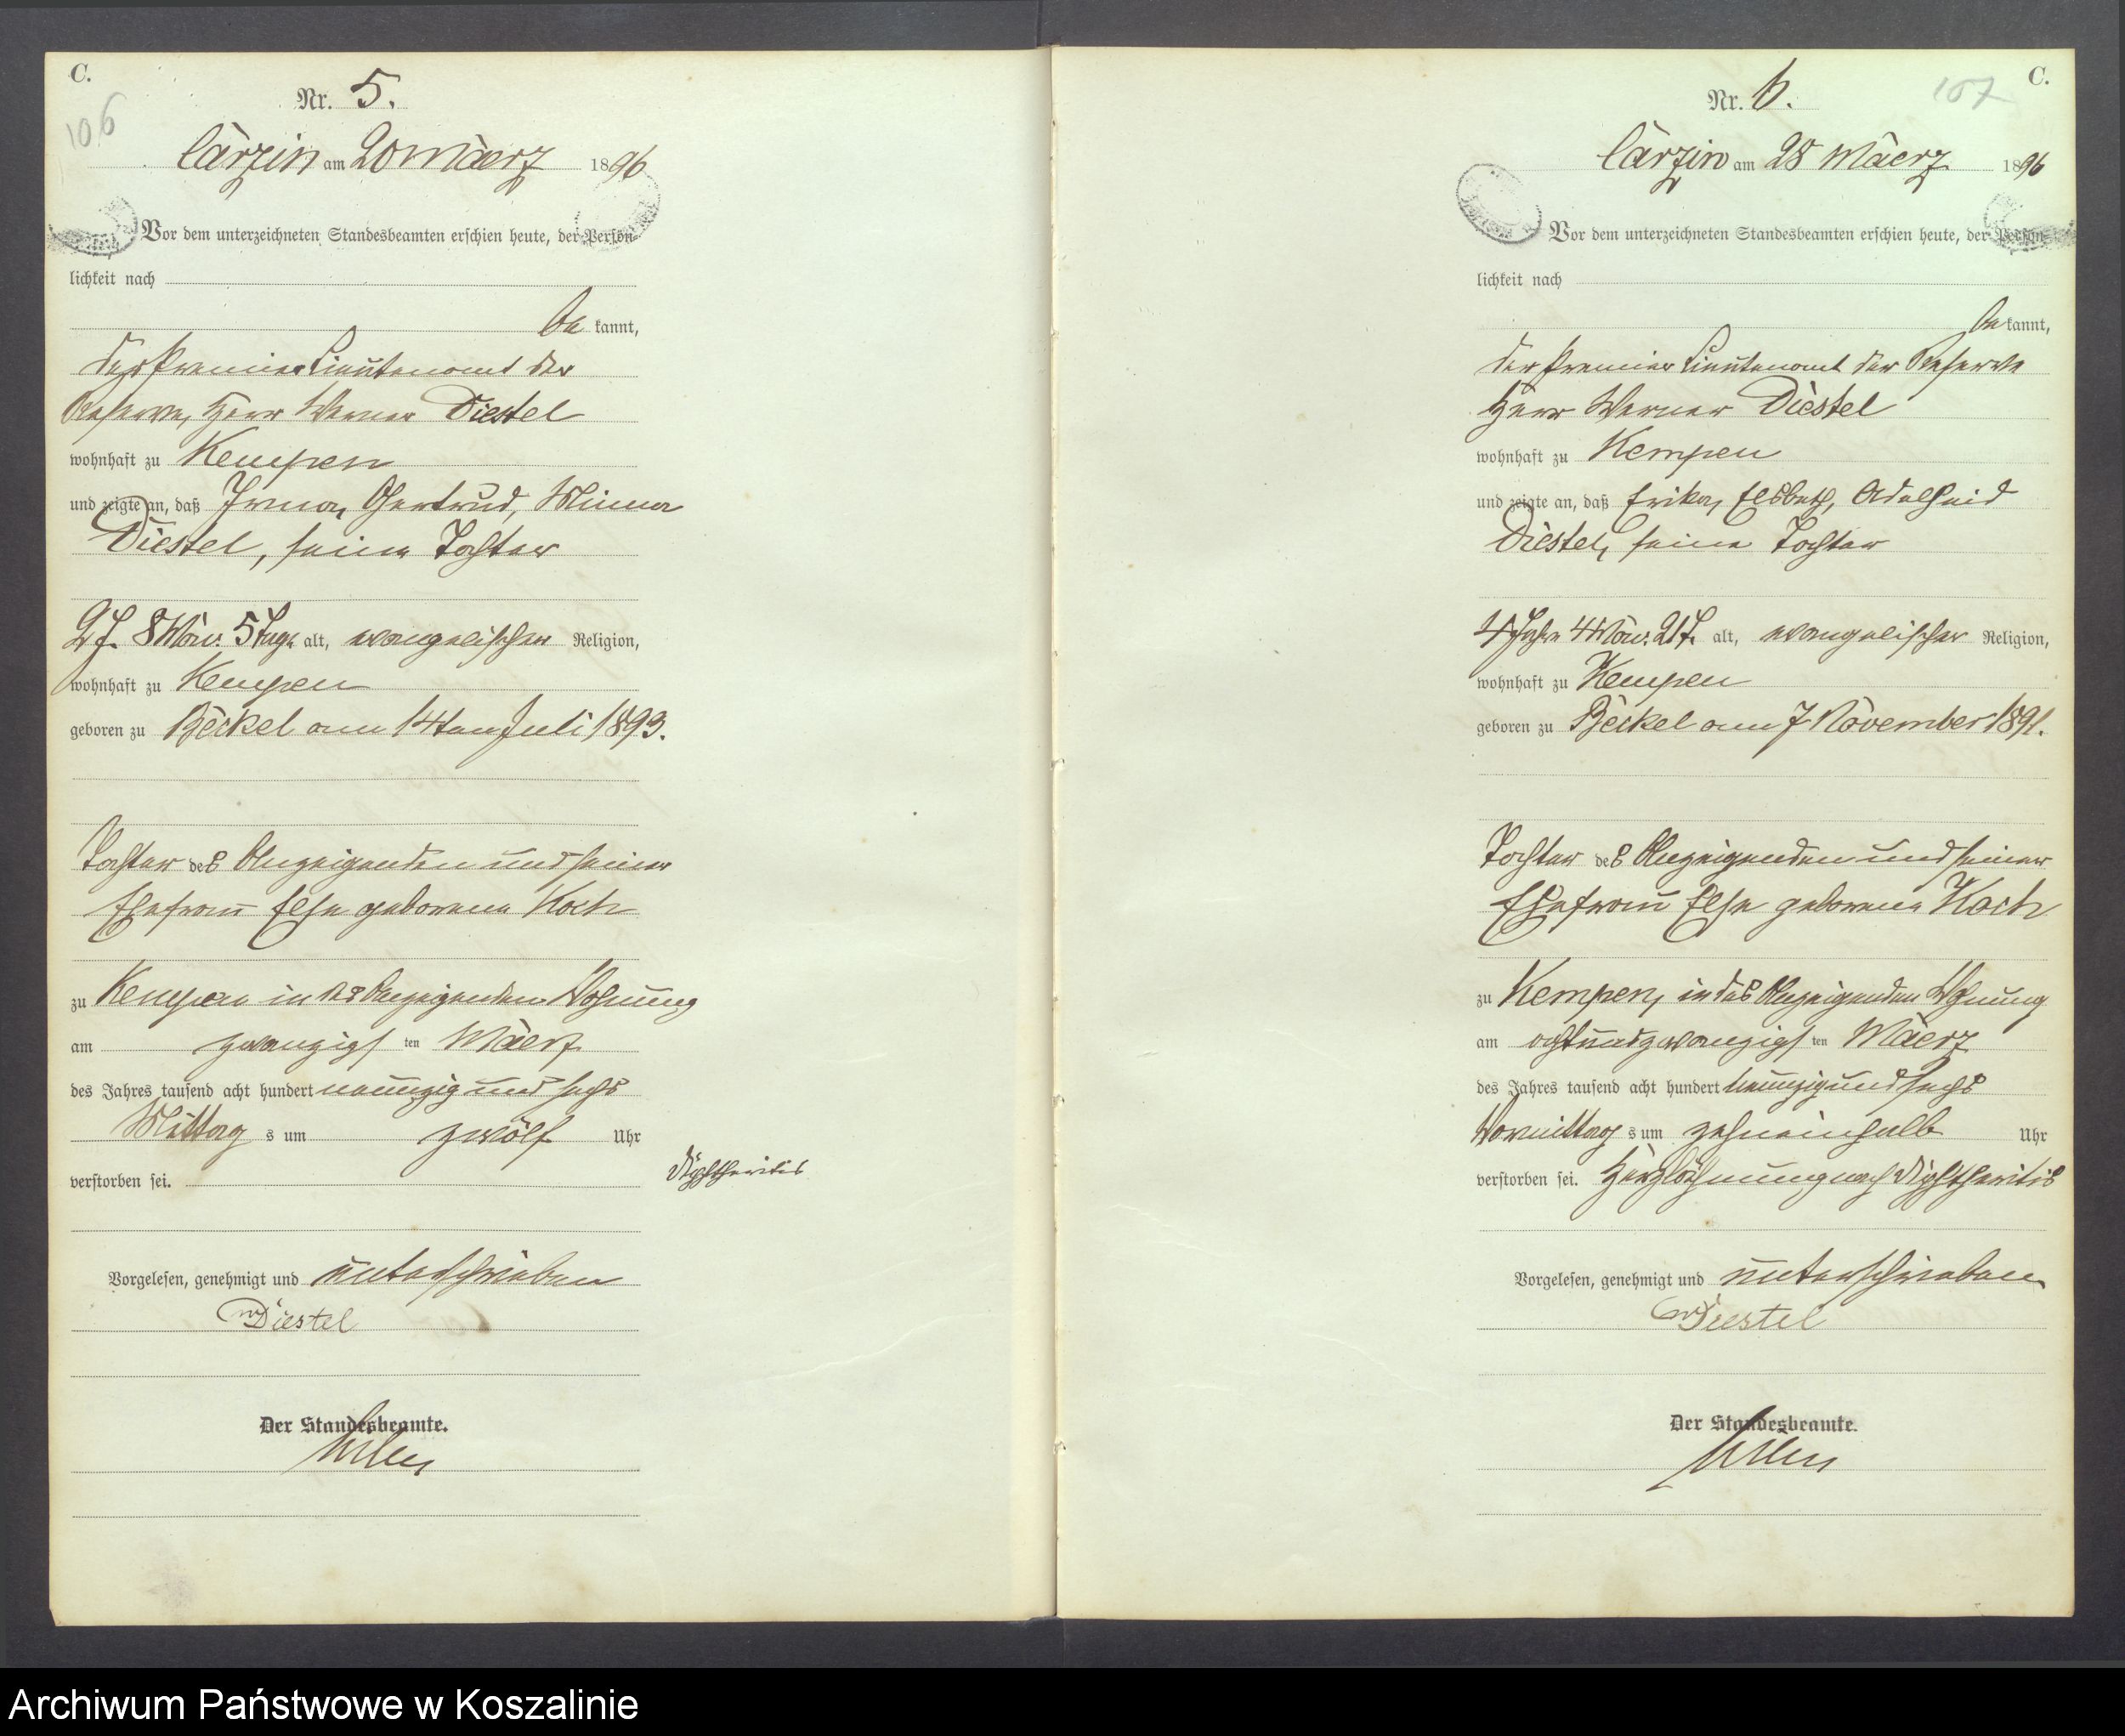 C.
106
Nr. 5.
Carzin am 20 Maerz 1896
Vor dem unterzeichneten Standesbeamten erschien heute, der Persön-
lichkeit nach
be kannt,
der Premier Lieutenant der
Reserve, Herr Werner Diestel
wohnhaft zu Kempen
und zeigte an, daß Irma, Gertrud, Minna
Diestel, seine Tochter
2 J. 8 Mon. 5 Tage alt, evangelischer Religion,
wohnhaft zu Kempen
geboren zu Beckel am 14ten Juli 1893.
Tochter des Anzeigenden und seiner
Ehefrau Else geborene Koch
zu Kempen in des Anzeigenden Wohnung
am zwanzigs ten Maerz
des Jahres tausend acht hundert neunzig und sechs
Mittag s um zwölf Uhr
verstorben sei. Diphtheritis
Vorgelesen, genehmigt und unterschrieben
W Diestel
Der Standesbeamte.
C.
107
Nr. 6.
Carzin am 28 Maerz 1896
Vor dem unterzeichneten Standesbeamten erschien heute, der Persön-
lichkeit nach
be kannt,
der Premier Lieutenant der Reserve
Herr Werner Diestel
wohnhaft zu Kempen
und zeigte an, daß Erika, Elsbeth, Adelheid
Diestel, seine Tochter
4 Jahre 4 Mon. 21 T. alt, evangelischer Religion,
wohnhaft zu Kempen
geboren zu Beckel am 7 November 1891.
Tochter des Anzeigenden und seiner
Ehefrau Else geborene Koch
zu Kempen, in des Anzeigenden Wohnung
am achtundzwanzigs ten Maerz
des Jahres tausend acht hundert neunzig und sechs
Vormittag s um zehneinhalb Uhr
verstorben sei. Herzlähmung nach Diphtheritis
Vorgelesen, genehmigt und unterschrieben
W Diestel
Der Standesbeamte.
Archiwum Państwowe w Koszalinie